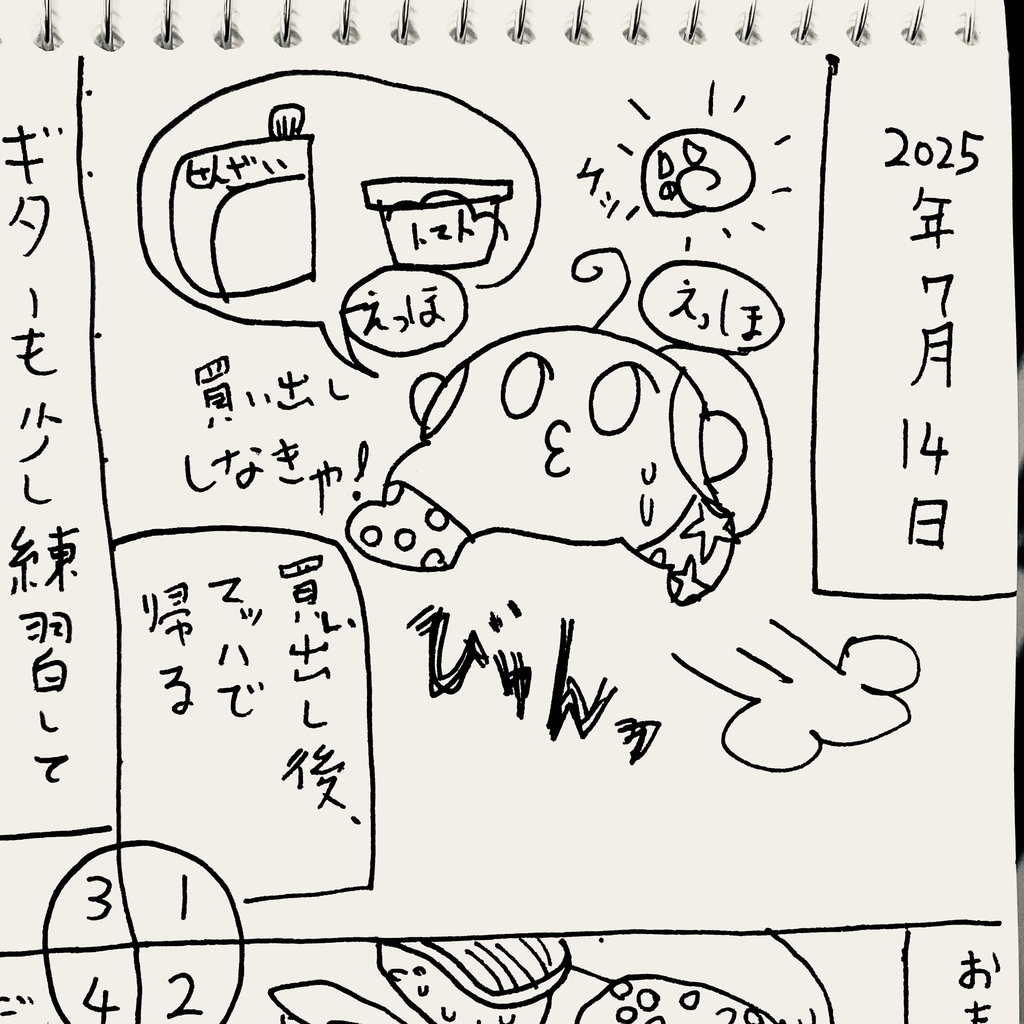 2025年7月14日
ケッ
せんざい
トマト
えっほ
えっほ
買い出し
しなきゃ!
びゅんっ
買い出し後、
マッハで
帰る
ギターも少し練習して
1
3
2
4
おも
ご